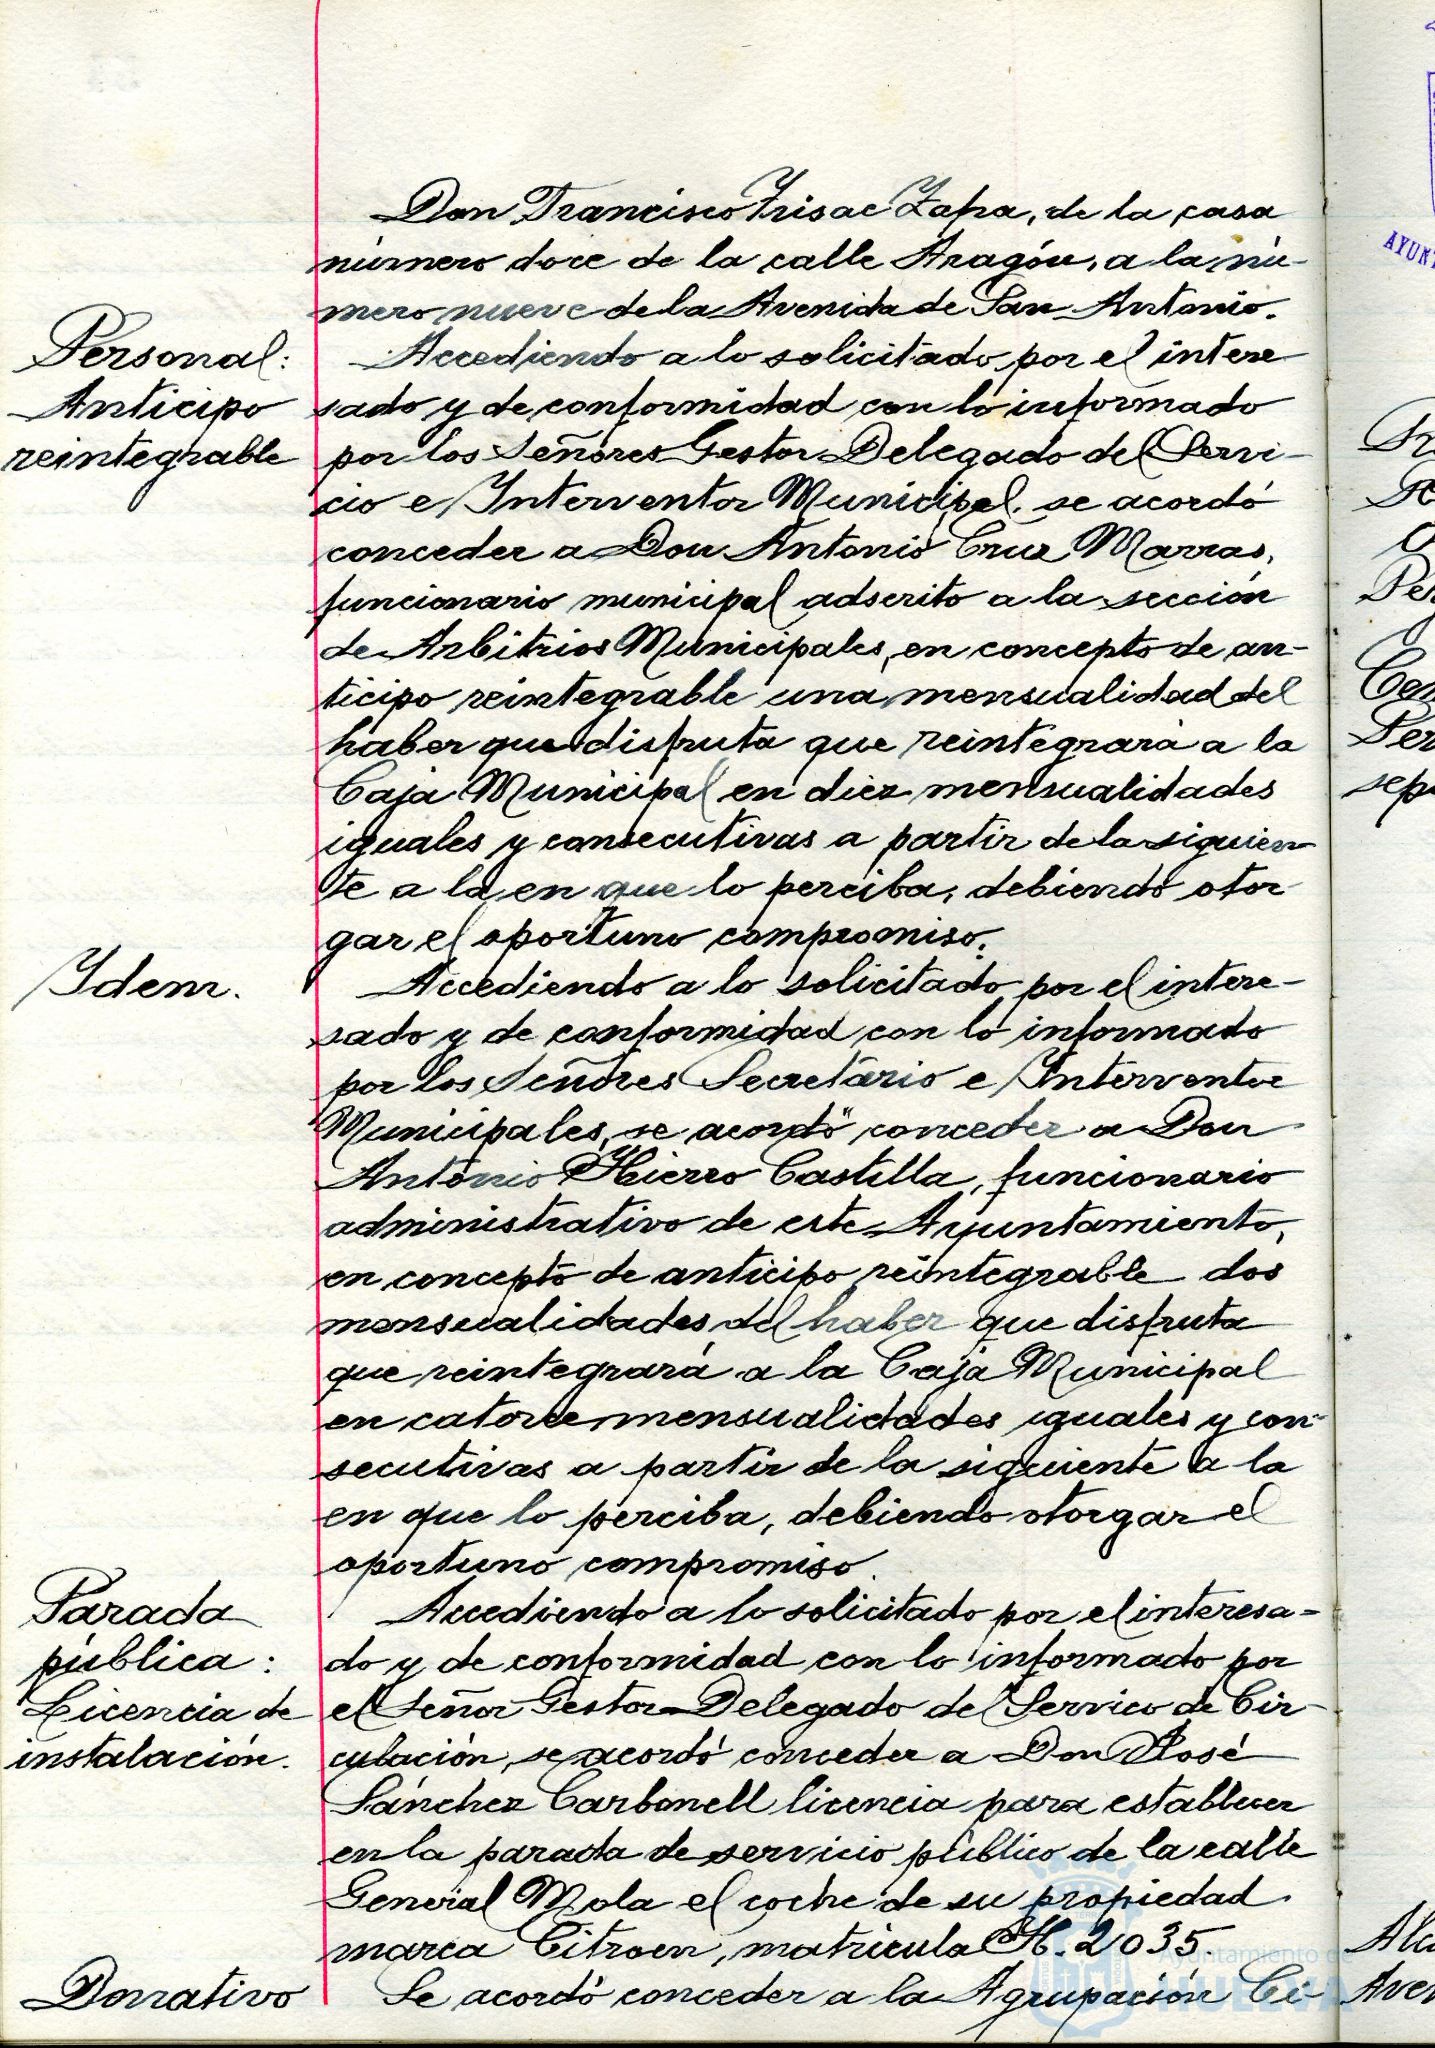 Don Francisco Yrisac Zapa, de la casa
número doce de la calle Aragón, a la nú-
mero nueve de la Avenida de San Antonio.
Personal:
Anticipo
reintegrable
Accediendo a lo solicitado por el intere
sado y de conformidad con lo informado
por los Señores Gestor Delegado del Servi-
cio e Interventor Municipal, se acordó
conceder a Don Antonio Cruz Marras,
funcionario municipal adscrito a la sección
de Arbitrios Municipales, en concepto de an-
ticipo reintegrable una mensualidad del
haber que disfruta que reintegrará a la
Caja Municipal en diez mensualidades
iguales y consecutivas a partir de la siguien-
te a la en que lo perciba, debiendo otor
gar el oportuno compromiso.
Ydem.
Accediendo a lo solicitado por el intere-
sado y de conformidad con lo informado
por los Señores Secretario e Interventor
Municipales, se acordó conceder a Don
Antonio Hierro Castilla, funcionario
administrativo de este Ayuntamiento,
en concepto de anticipo reintegrable dos
mensualidades del haber que disfruta
que reintegrará a la Caja Municipal
en catorce mensualidades iguales y con-
secutivas a partir de la siguiente a la
en que lo perciba, debiendo otorgar el
oportuno compromiso.
Parada
pública:
Licencia de
instalación.
Accediendo a lo solicitado por el interesa-
do y de conformidad con lo informado por
el Señor Gestor Delegado del Servico de Cir-
culación, se acordó conceder a Don José
Sánchez Carbonell licencia para establecer
en la parada de servicio público de la calle
General Mola el coche de su propiedad
marca Citroen, matricula H. 2035
Donativo
Se acordó conceder a la Agrupación Ci-
Ayuntamiento de
HUELVA